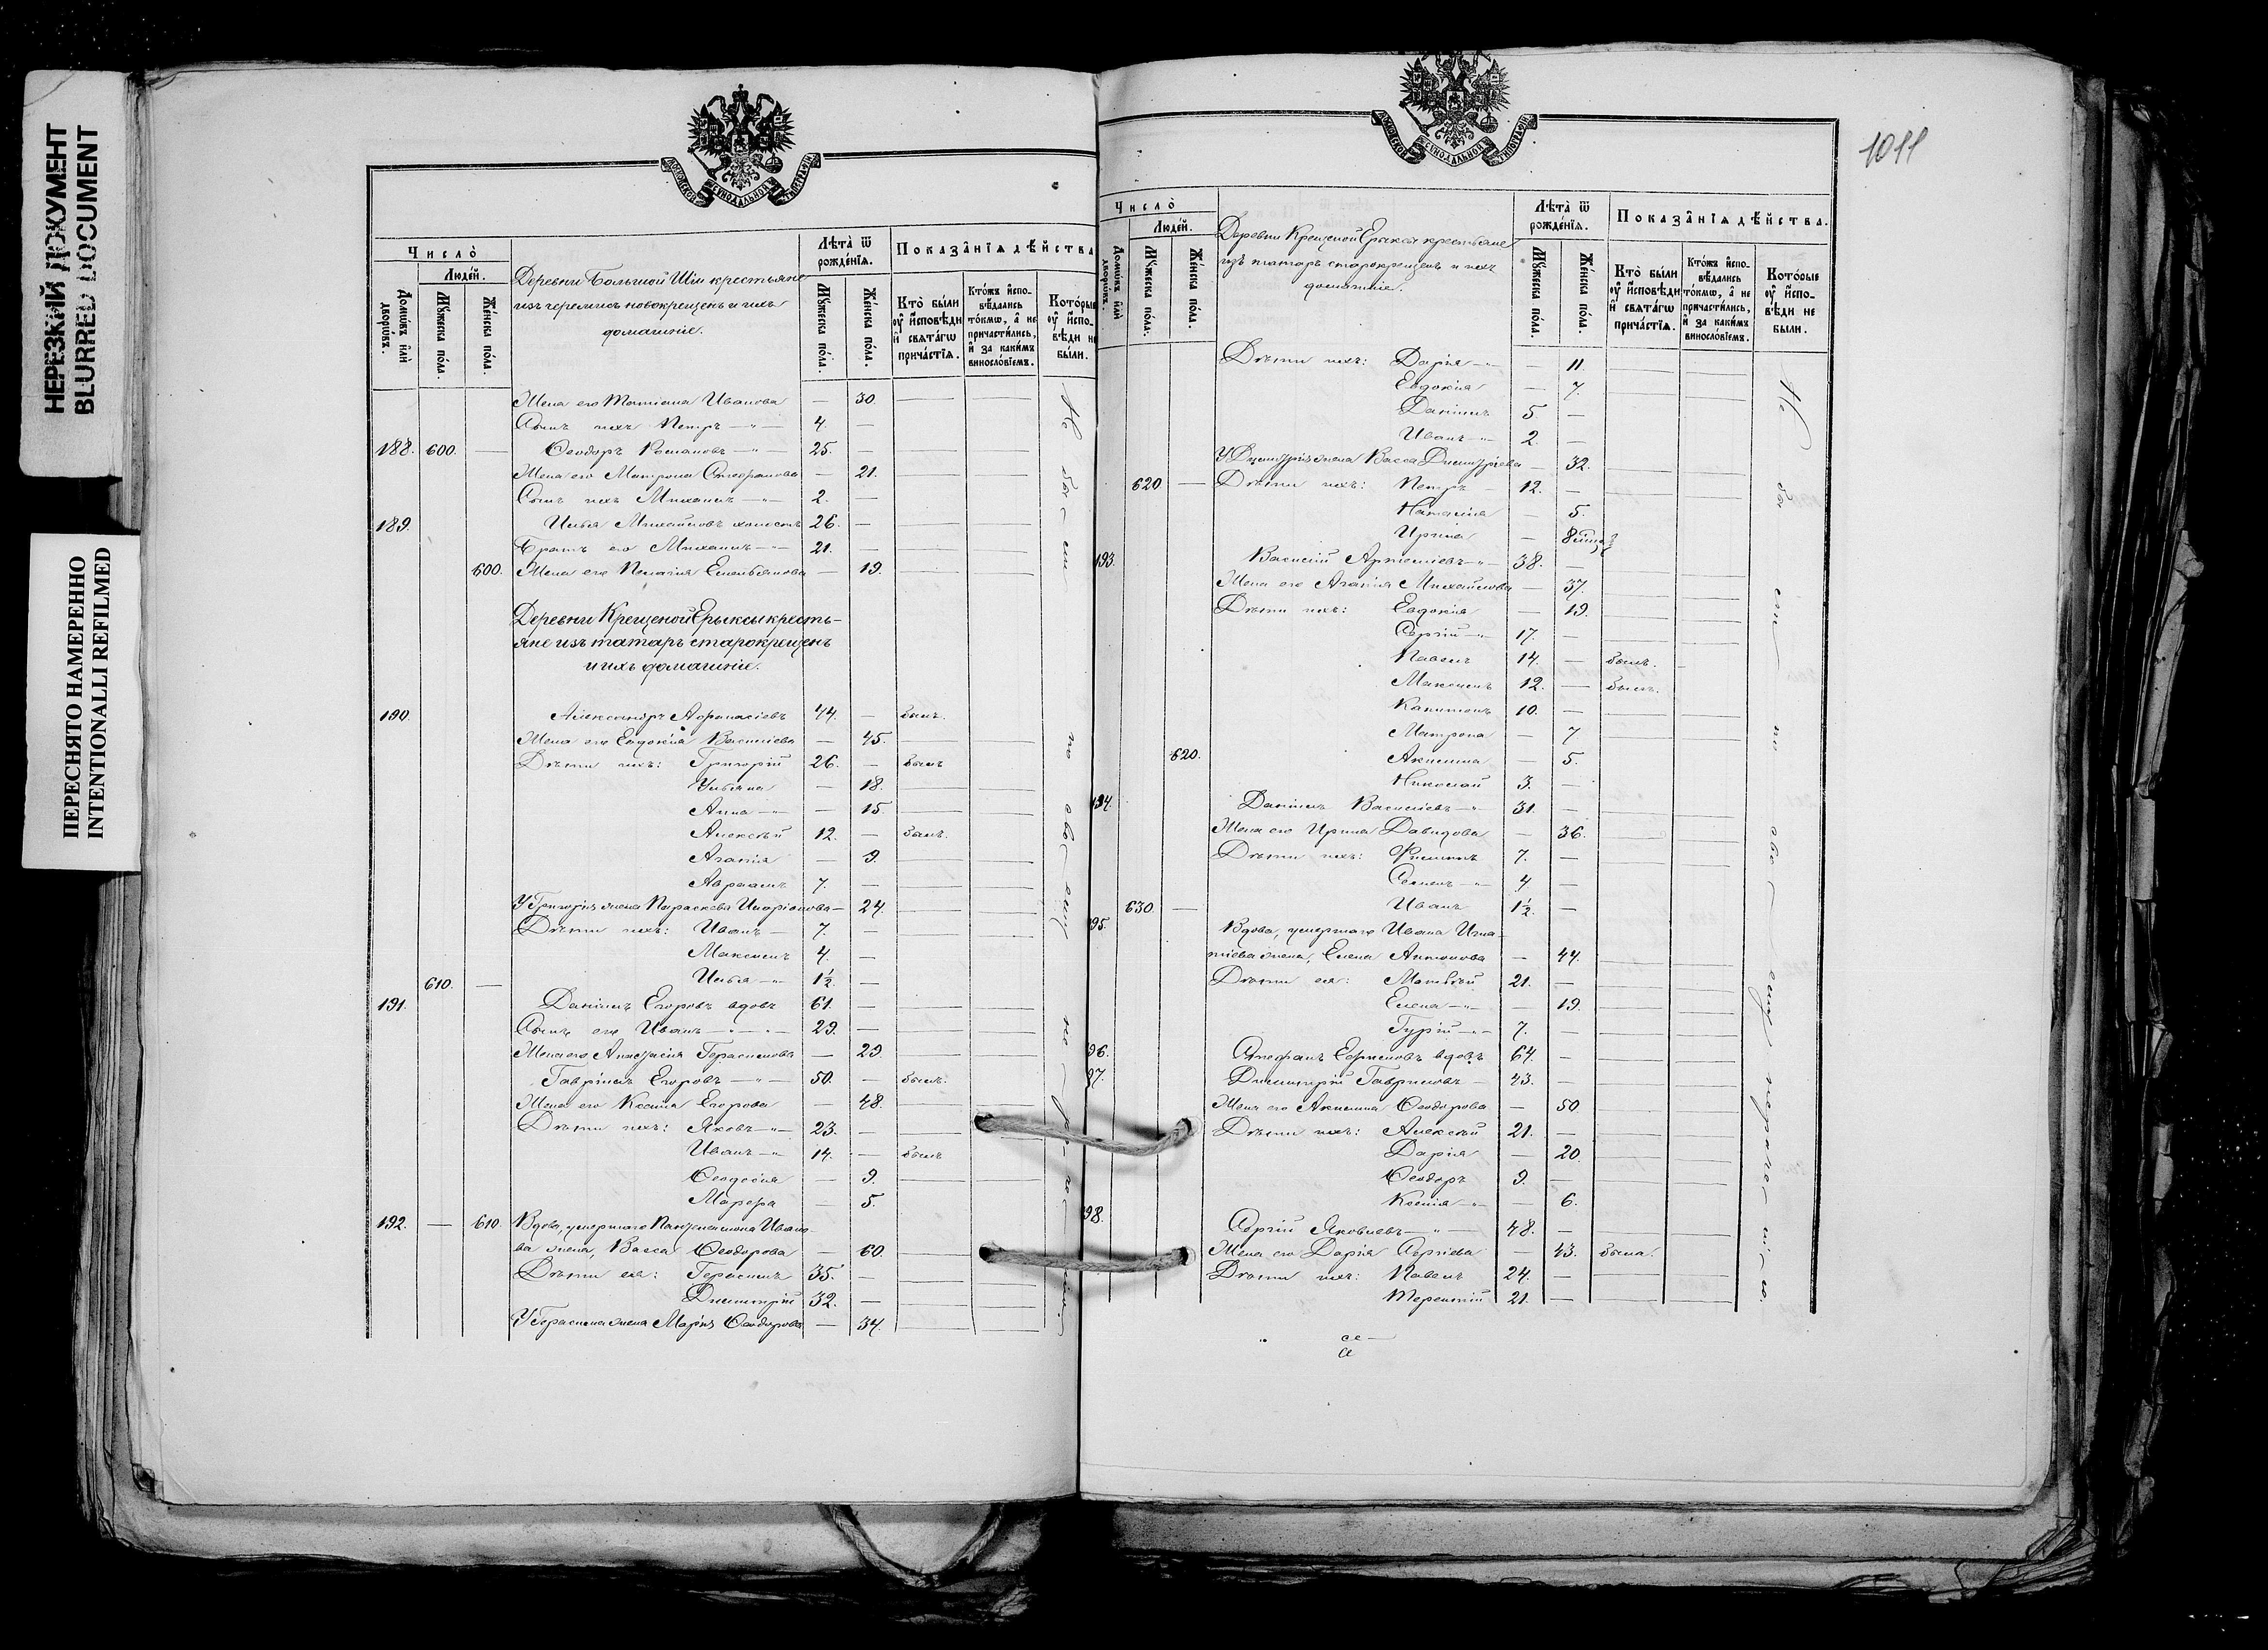 НЕРЕЗКИЙ ДОКУМЕНТ
BLURRED DOCUMENT
ПЕРЕСНЯТО НАМЕРЕННО
INTENTIONALLI REFILMED
МОСКОВСКОЙ СѴНОДАЛЬНОЙ ТИПОГРАФІИ
Число̀
Людей.
Домѡвъ илѝ дворѡвъ.
Мꙋжеска пола.
Женска пола.
Деревни Большой Ши крестьяне
изъ черемисъ новокрещенъ и ихъ
домашніе.
Лѣта̀ ѿ рожденїѧ.
Мꙋжеска пола.
Женска пола.
Показанїѧ дѣйства
Кто̀ были оу҆ и҆сповѣди и҆ свѧтагѡ причастїѧ.
Ктожъ и҆сповѣдались токмѡ, а҆ не причастились, и҆ за какимъ винословїемъ.
Которые оу҆ и҆сповѣди не были.
Жена его Татiана Иванова — 30.
Сынъ ихъ Петръ —"— 4. —
188. 600. — Ѳеодоръ Романовъ —"— 25. —
Жена его Матрона Стефанова — 21.
Сынъ ихъ Михаилъ —"— 2. —
189. Илья Михайловъ холостъ 26. —
Братъ его Михаилъ —"— 21. —
600. Жена его Пелагія Емельянова — 19.
Деревни Крещеной Ерыксы кресть-
яне изъ татаръ старокрещенъ
и ихъ домашніе.
190. Александръ Аѳанасіевъ 44. — былъ.
Жена его Евдокія Василіева — 45.
Дѣти ихъ: Григорій 26. — былъ
Ульяна — 18.
Анна —"— — 15.
Алексѣй 12. — былъ.
Агапія — 9.
Авраамъ 7. —
У Григорія жена Параскева Иларіонова — 24.
Дѣти ихъ: Иванъ — 7. —
Максимъ 4. —
610. — Илья —"— 1½. —
191. Даніилъ Егоровъ вдовъ 61. —
Сынъ его Иванъ —"—"— 29. —
Жена его Анастасія Герасимова — 29.
Гавріилъ Егоровъ —"— 50. — былъ.
Жена его Ксенія Егорова — 48.
Дѣти ихъ: Яковъ —"— 23. —
Иванъ —"— 14. — былъ
Ѳеодосія — 9.
Марѳа — 5.
192. — 610. Вдова, умершаго Пантелеимона Ивано-
ва жена, Васса Ѳеодорова — 60.
Дѣти ея: Герасимъ 35. —
Димитрій 32. —
У Герасима жена Марія Ѳеодорова — 34.
Не бы-ли по сво-ему не-
1011
МОСКОВСКОЙ СѴНОДАЛЬНОЙ ТИПОГРАФІИ
Число̀
Людей.
Домѡвъ илѝ дворѡвъ.
Мꙋжеска пола.
Женска пола.
Деревни Крещеной Ерыксы крестьяне
изъ татаръ старокрещенъ и ихъ
домашніе.
Лѣта̀ ѿ рожденїѧ.
Мꙋжеска пола.
Женска пола.
Показанїѧ дѣйства.
Кто̀ были оу҆ и҆сповѣди и҆ свѧтагѡ причастїѧ.
Ктожъ и҆сповѣдались токмѡ, а҆ не причастились, и҆ за какимъ винословїемъ.
Которые оу҆ и҆сповѣди не были.
Дѣти ихъ: Дарія —"— — 11.
Евдокія — 7.
Даніилъ 5. —
Иванъ —"— 2. —
У Димитрія жена Васса Димитріева — 32.
620 — Дѣти ихъ: Петръ 12. —
Наталія — 5.
Ирина — 8
193. Василій Артеміевъ —"— 38. —
Жена его Агапія Михайлова — 37.
Дѣти ихъ: Евдокія — 19.
Сергій —"— 17. —
Павелъ 14. — былъ.
Максимъ 12. — былъ.
Капитонъ 10. —
Матрона — 7
620. Акилина — 5.
Николай 3. —
194. Даніилъ Василіевъ —"— 31. —
Жена его Ирина Давидова — 36.
Дѣти ихъ: Филиппъ 7. —
Семенъ —"— 4. —
630. — Иванъ 1½. —
95. Вдова, умершаго Ивана Игна-
тіева жена, Елена Антонова — 44.
Дѣти ея: Матѳей 21. —
Елена —"— — 19.
Гурій —"— 7. —
96. Стефанъ Ефимовъ вдовъ 64. —
97. Димитрій Гавриловъ — 43. —
Жена его Акилина Ѳеодорова — 50
Дѣти ихъ: Алексѣй 21. —
Дарія — 20.
Ѳеодоръ 9. —
Ксенія —"— — 6.
98. Сергій Яковлевъ —"— 48. —
Жена его Дарія Сергіева — 43. была.
Дѣти ихъ: Павелъ 24. —
Терентій 21. —
Не бы-ли по сво-ему нераде-ні-ю.